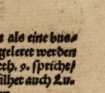 als eine bus⸗
geleret werden
rth. 9. spricht/
ilhet auch Lu⸗